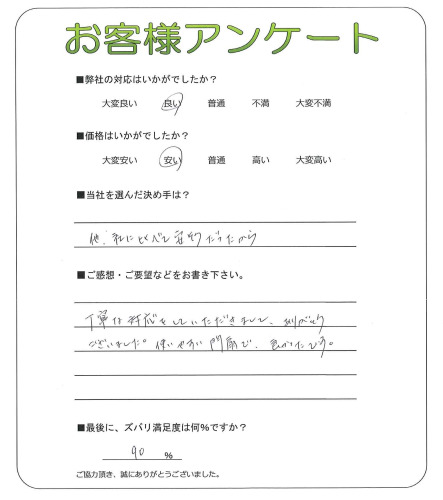 お客様アンケート
■弊社の対応はいかがでしたか?
大変良い 良い 普通 不満 大変不満
■価格はいかがでしたか?
大変安い 安い 普通 高い 大変高い
■当社を選んだ決め手は?
他社に比べて安かったから
■ご感想・ご要望などをお書き下さい。
丁寧な対応をしていただきまして、ありがとう
ございました。使いやすい門扉で、良かったです。
■最後に、ズバリ満足度は何%ですか?
90 %
ご協力頂き、誠にありがとうございました。